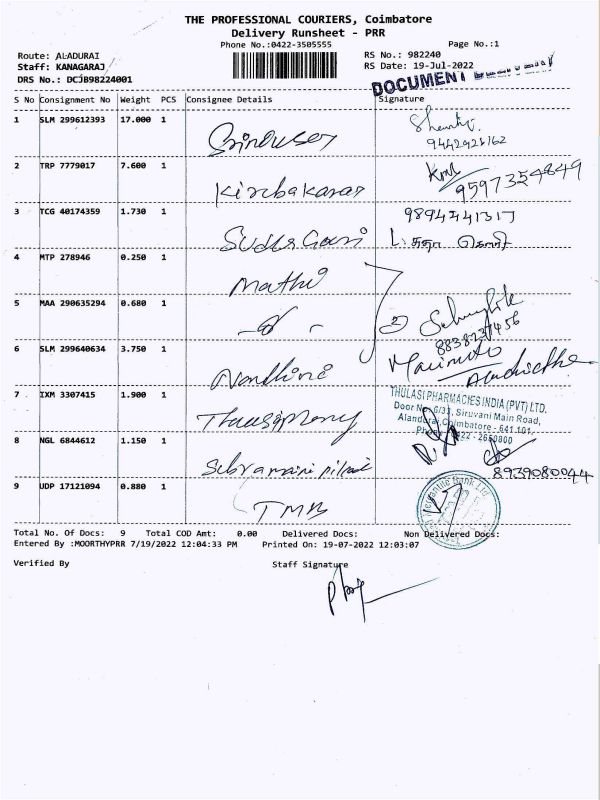 THE PROFESSIONAL COURIERS, Coimbatore
Delivery Runsheet - PRR
Phone No.:0422-3505555
Page No.:1
Route: ALADURAI
RS No.: 982240
Staff: KANAGARAJ
RS Date: 19-Jul-2022
DRS No.: DCJB98224001
DOCUMENT
S No Consignment No Weight PCS Consignee Details Signature
1 SLM 299612393 17.000 1
2 TRP 7779017 7.600 1 Kirubakaran
9597354849
3 TCG 40174359 1.730 1
9894441317
4 MTP 278946 0.250 1 Mathi
5 MAA 290635294 0.680 1
8838237456
6 SLM 299640634 3.750 1 Nandhini
7 IXM 3307415 1.900 1
THULASI PHARMACIES INDIA (PVT) LTD.
Door No. 6/33, Siruvani Main Road,
Alandurai, Coimbatore - 641 101.
Phone: 0422 - 2650800
8 NGL 6844612 1.150 1
8939080044
9 UDP 17121094 0.880 1 TMB
Mercantile Bank Ltd
Total No. Of Docs: 9 Total COD Amt: 0.00 Delivered Docs: Non Delivered Docs:
Entered By :MOORTHYPRR 7/19/2022 12:04:33 PM Printed On: 19-07-2022 12:03:07
Verified By Staff Signature